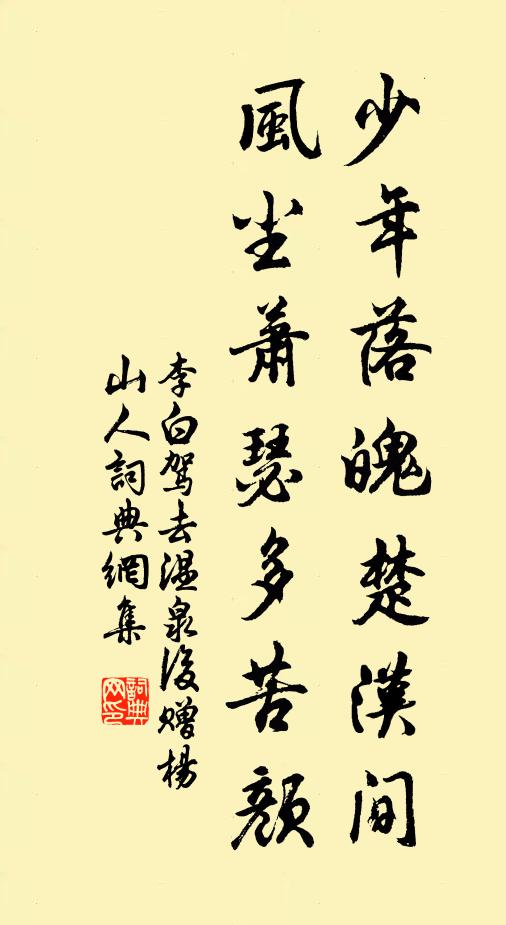 少年落魄楚漢間
風尘蕭瑟多苦顏
李白駕去温泉後贈楊
山人詞典網集
詞典
网印